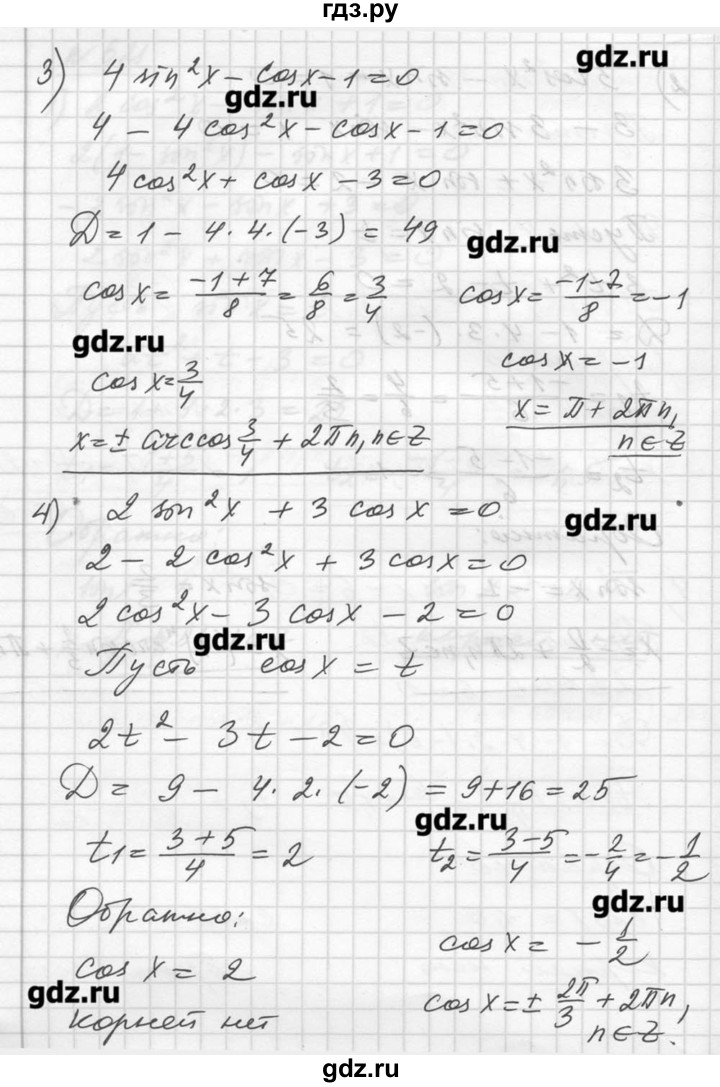 гдз.ру
3) 4 sin²x – cosx – 1 = 0
gdz.ru
gdz.ru
4 – 4cos²x – cosx – 1 = 0
4cos²x + cosx – 3 = 0
D = 1 – 4·4·(-3) = 49
gdz.ru
cosx = (-1+7)/8 = 6/8 = 3/4
cosx = (-1-7)/8 = -1
gdz.ru
cosx = 3/4
cosx = -1
x = ± arccos 3/4 + 2πn, n∈Z
x = π + 2πn,
n∈Z
4) 2 sin²x + 3 cosx = 0
gdz.ru
2 – 2cos²x + 3cosx = 0
2cos²x – 3cosx – 2 = 0
gdz.ru
Пусть cosx = t
2t² – 3t – 2 = 0
D = 9 – 4·2·(-2) = 9+16 = 25
gdz.ru
t₁ = (3+5)/4 = 2
t₂ = (3-5)/4 = -2/4 = -1/2
Обратно:
gdz.ru
cosx = 2
cosx = -1/2
gdz.ru
корней нет
cosx = ± 2π/3 + 2πn,
n∈Z.
gdz.ru